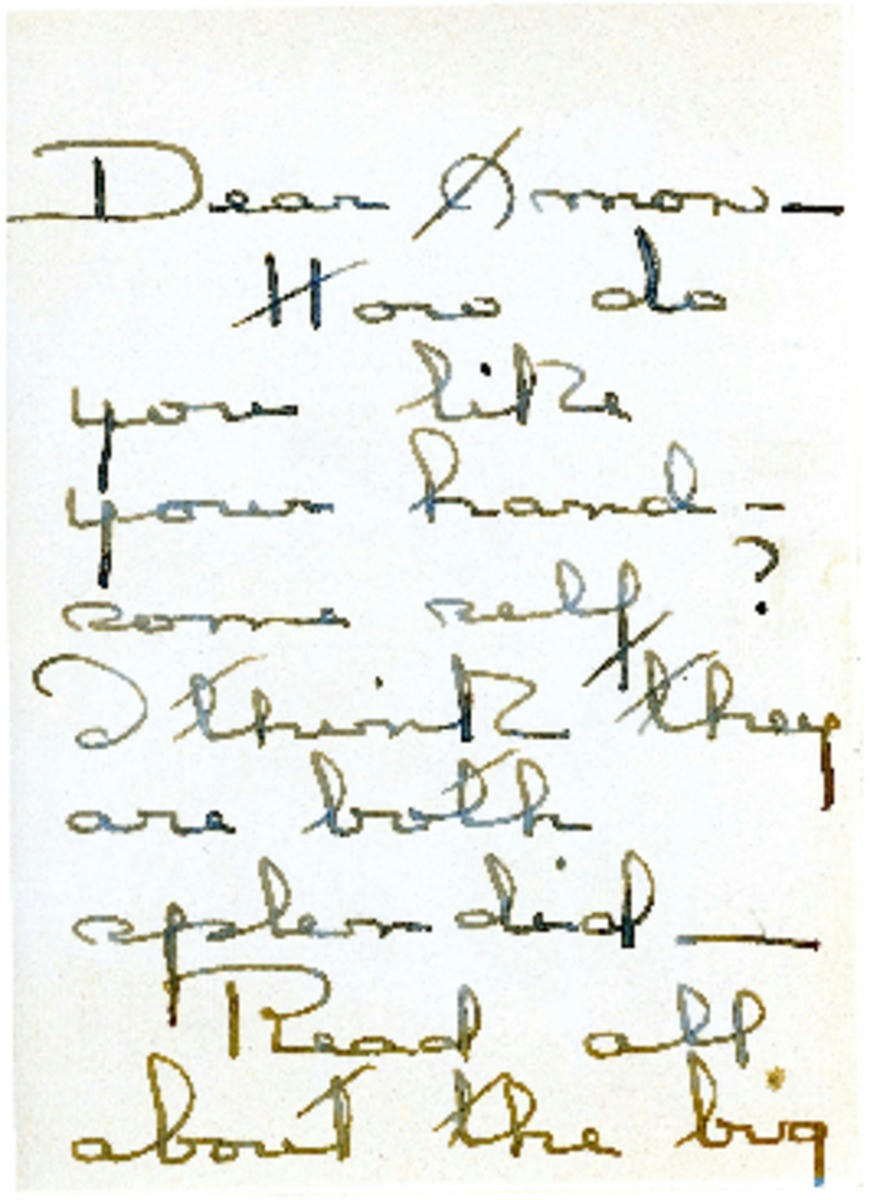 Dear Amon —
How do
you like
your hand-
some self?
I think they
are both
splendid —
Read all
about the big